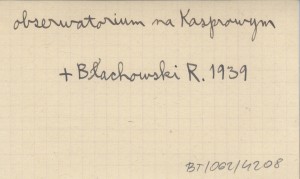 obserwatorium na Kasprowym
+ Błachowski R. 1939
BT/062/4208